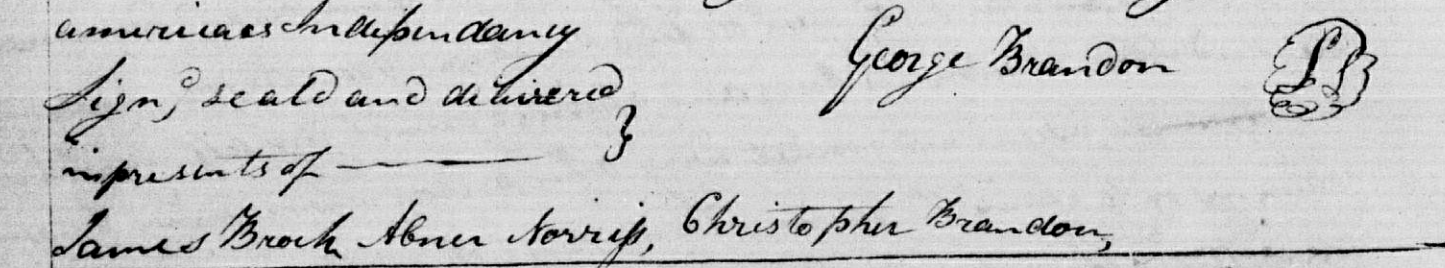 americaes Independancy
Sign,d seald and delivered
in presents of
George Brandon LS
James Brock Abner Norriss, Christopher Brandon,